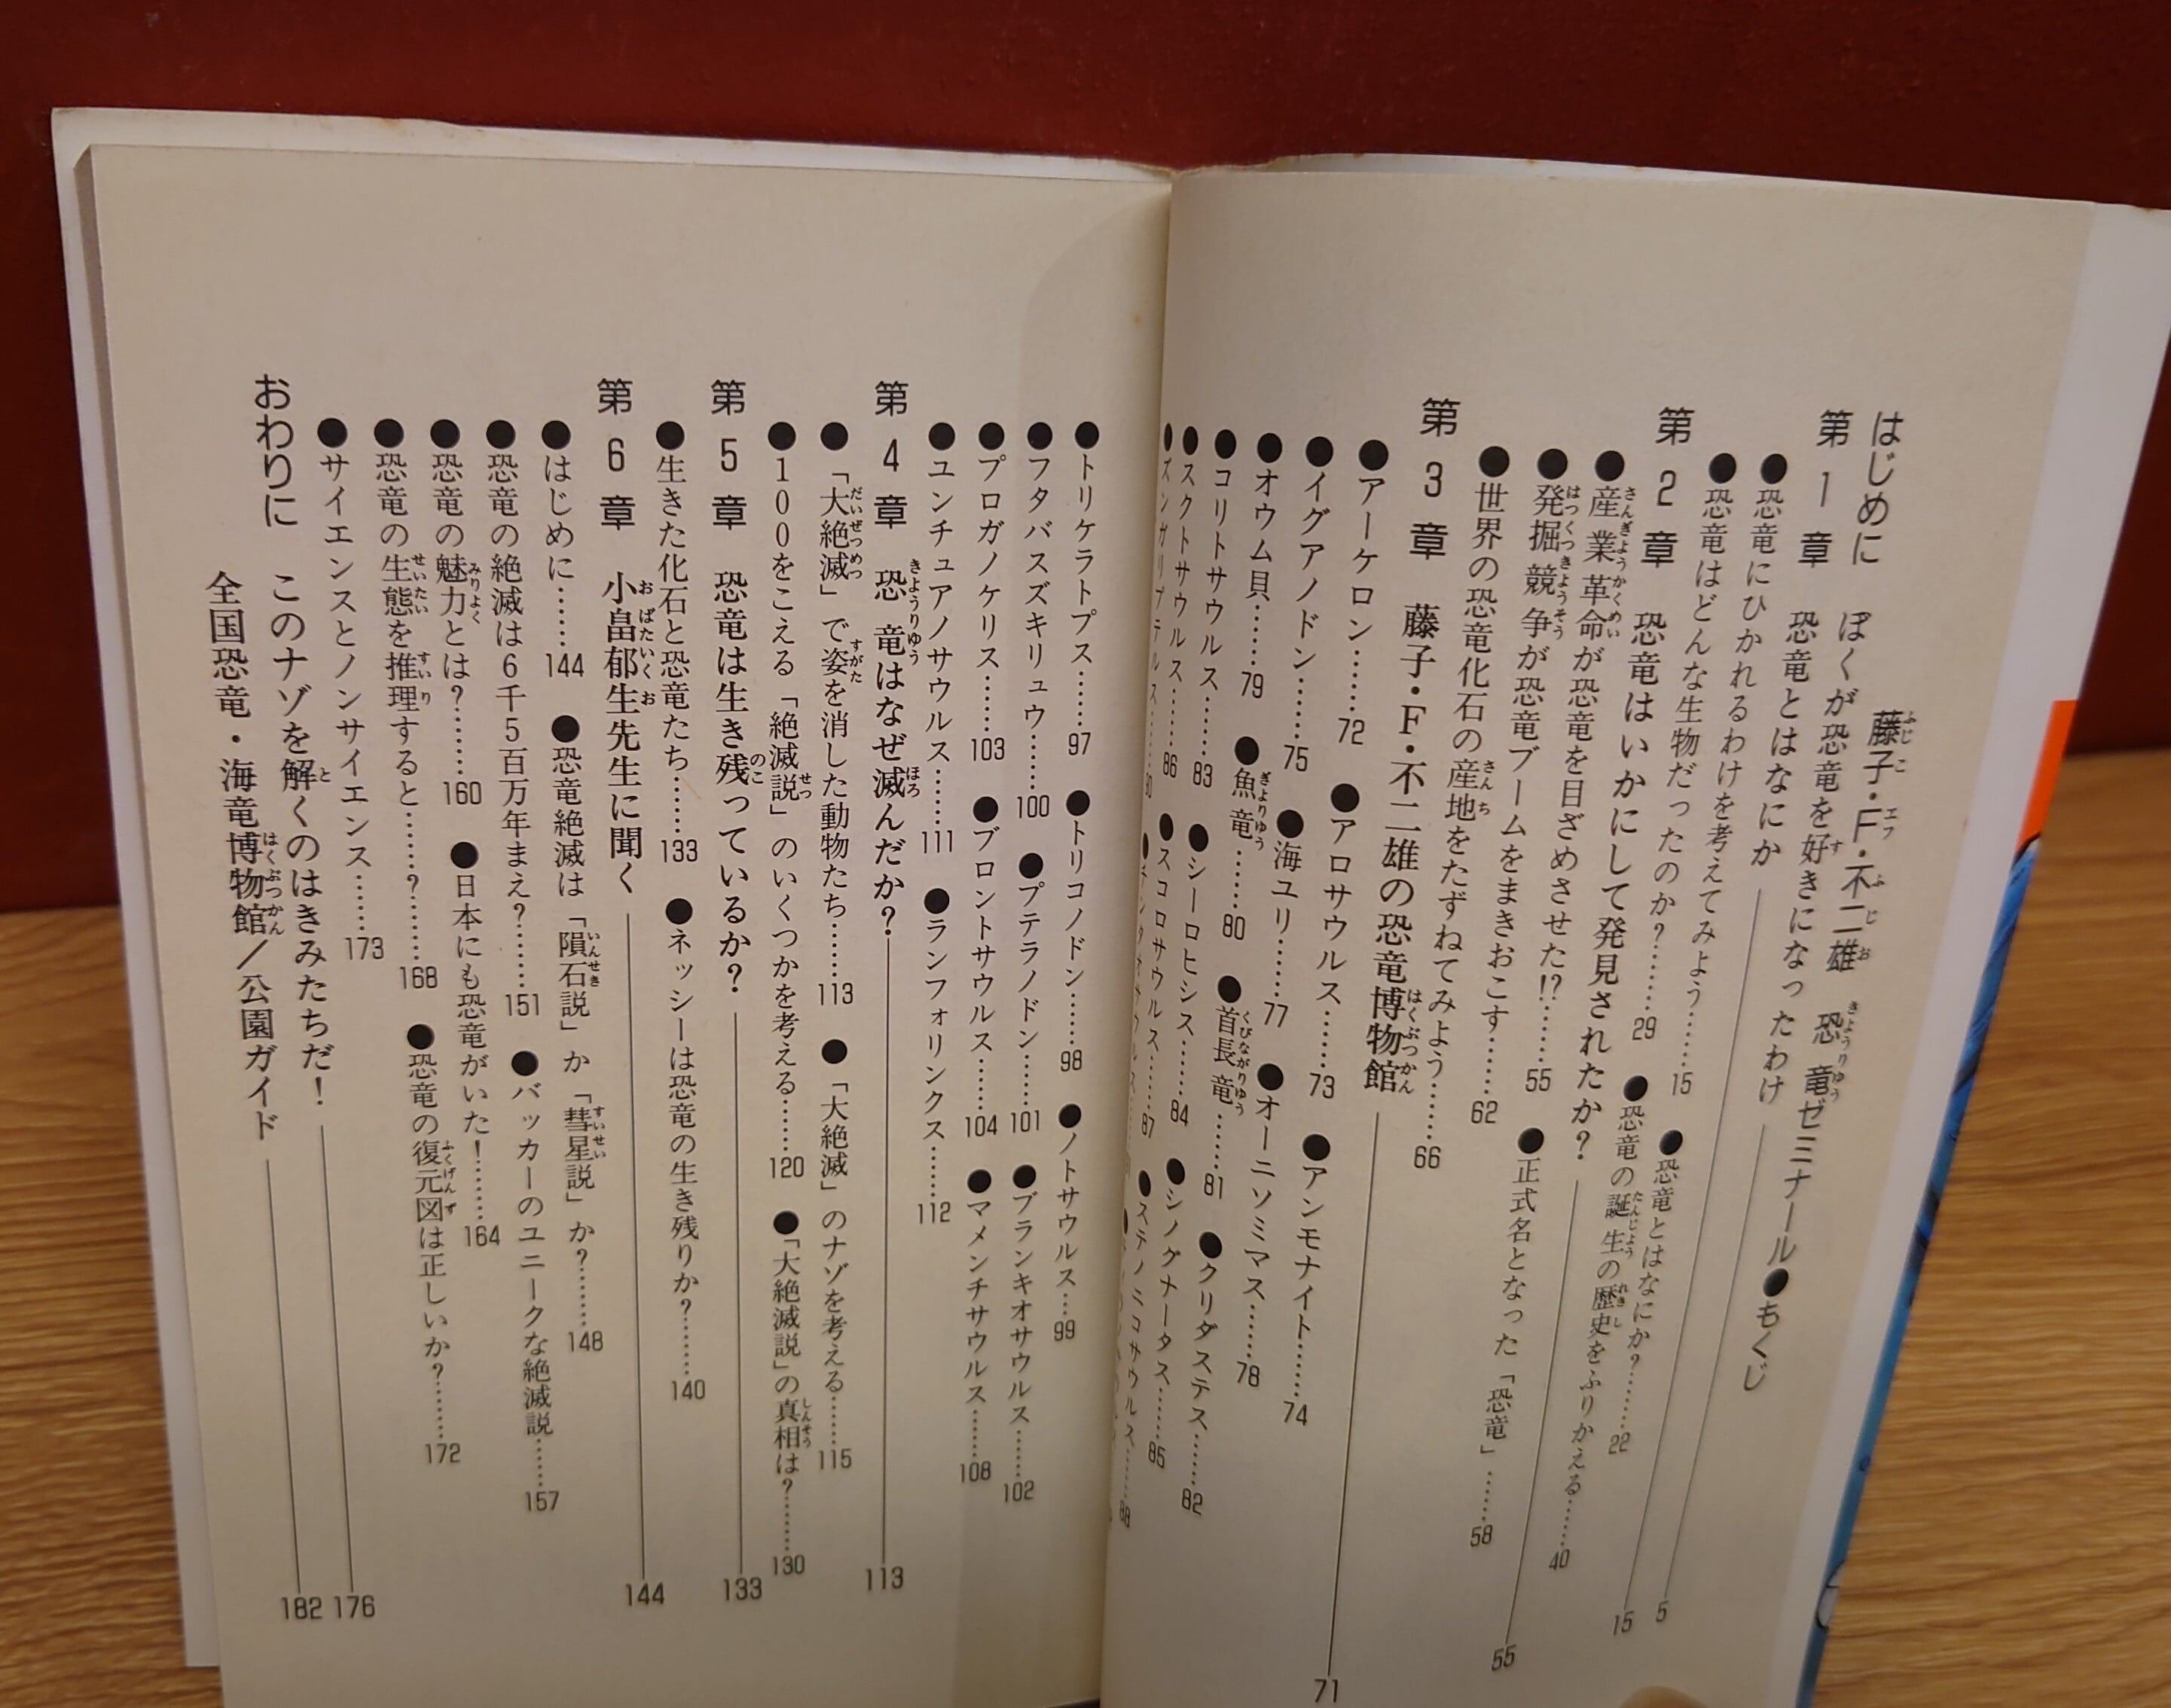 藤子・F・不二雄　恐竜ゼミナール●もくじ
はじめに　ぼくが恐竜を好きになったわけ 5
第1章　恐竜とはなにか 15
●恐竜にひかれるわけを考えてみよう……15　●恐竜とはなにか？………22
●恐竜はどんな生物だったのか？……29　●恐竜の誕生の歴史をふりかえる……40
第2章　恐竜はいかにして発見されたか？ 55
●産業革命が恐竜を目ざめさせた!?……55　●正式名となった「恐竜」……58
●発掘競争が恐竜ブームをまきおこす……62
●世界の恐竜化石の産地をたずねてみよう……66
第3章　藤子・F・不二雄の恐竜博物館 71
●アーケロン……72　●アロサウルス……73　●アンモナイト……74
●イグアノドン……75　●海ユリ……77　●オーニソミマス……78
●オウム貝……79　●魚竜……80　●首長竜……81　●クリダステス……82
●コリトサウルス……83　●シーロヒシス……84　●シノグナータス……85
●スクトサウルス……86　●スコロサウルス……87　●ステノニコサウルス……88
●ズンガリプテルス……90
●トリケラトプス……97　●トリコノドン……98　●ノトサウルス…99
●フタバスズキリュウ……100　●プテラノドン……101　●ブランキオサウルス……102
●プロガノケリス……103　●ブロントサウルス……104　●マメンチサウルス……108
●ユンチュアノサウルス……111　●ランフォリンクス……112
第4章　恐竜はなぜ滅んだか？ 113
●「大絶滅」で姿を消した動物たち……113　●「大絶滅」のナゾを考える……115
●100をこえる「絶滅説」のいくつかを考える……120　●「大絶滅説」の真相は？……130
第5章　恐竜は生き残っているか？ 133
●生きた化石と恐竜たち……133　●ネッシーは恐竜の生き残りか？……140
第6章　小畠郁生先生に聞く 144
●はじめに……144　●恐竜絶滅は「隕石説」か「彗星説」か？……148
●恐竜の絶滅は6千5百万年まえ？……151　●バッカーのユニークな絶滅説……157
●恐竜の魅力とは？……160　●日本にも恐竜がいた！……164
●恐竜の生態を推理すると……？……168　●恐竜の復元図は正しいか？……172
●サイエンスとノンサイエンス……173
おわりに　このナゾを解くのはきみたちだ！ 176
全国恐竜・海竜博物館／公園ガイド 182